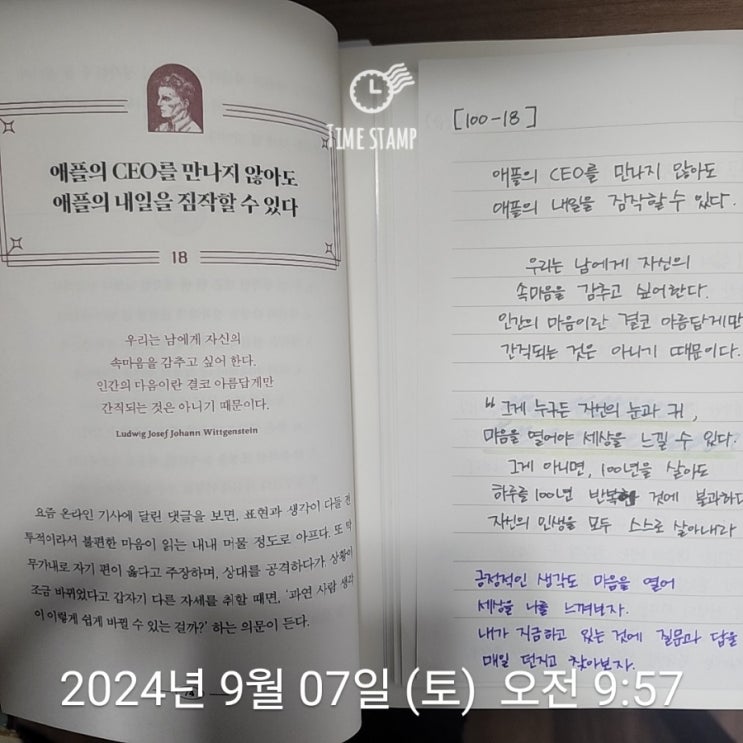 애플의 CEO를 만나지 않아도
애플의 내일을 짐작할 수 있다
18
우리는 남에게 자신의
속마음을 감추고 싶어 한다.
인간의 마음이란 결코 아름답게만
간직되는 것은 아니기 때문이다.
Ludwig Josef Johann Wittgenstein
요즘 온라인 기사에 달린 댓글을 보면, 표현과 생각이 다들 전
투적이라서 불편한 마음이 읽는 내내 머물 정도로 아프다. 또 막
무가내로 자기 편이 옳다고 주장하며, 상대를 공격하다가 상황이
조금 바뀌었다고 갑자기 다른 자세를 취할 때면, ‘과연 사람 생각
이 이렇게 쉽게 바뀔 수 있는 걸까?’ 하는 의문이 든다.
TIME STAMP
[100-18]
애플의 CEO를 만나지 않아도
애플의 내일을 짐작할 수 있다.
우리는 남에게 자신의
속마음을 감추고 싶어한다.
인간의 마음이란 결코 아름답게만
간직되는 것은 아니기 때문이다.
“그게 누구든 자신의 눈과 귀,
마음을 열어야 세상을 느낄 수 있다.
그게 아니면, 100년을 살아도
하루를 100년 반복한 것에 불과하다
자신의 인생을 모두 스스로 살아내라
긍정적인 생각도 마음을 열어
세상을 나를 느껴보자.
내가 지금하고 있는 것에 질문과 답을
매일 던지고 찾아보자.
2024년 9월 07일 (토) 오전 9:57